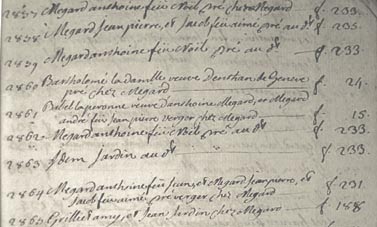 2857 Megard anthoine feu Noel pré chez Megard f. 233.
2858 Megard Jean pierre, et Jacob feu aimé pré au dt f. 235.
2859 Megard anthoine feu Noel pré au dt f. 233.
2860 Bartholemé la damlle veuve Denthan de Geneve
pré chez Megard f. 24.
2861 Babel la peronne veuve Danthoine Megard, et Megard
andré feu Jean pierre verger chez Megard f. 15.
2862 Megard anthoine feu Noel pré au dt f. 233.
2863 Idem Jardin au dt f. 233.
2864 Megard anthoine feu Jean, et Megard Jean pierre, et
Jacob feu aimé pré verger chez Megard f. 231
2865 Grillet amy, et Jean Jardin chez Megard f. 188